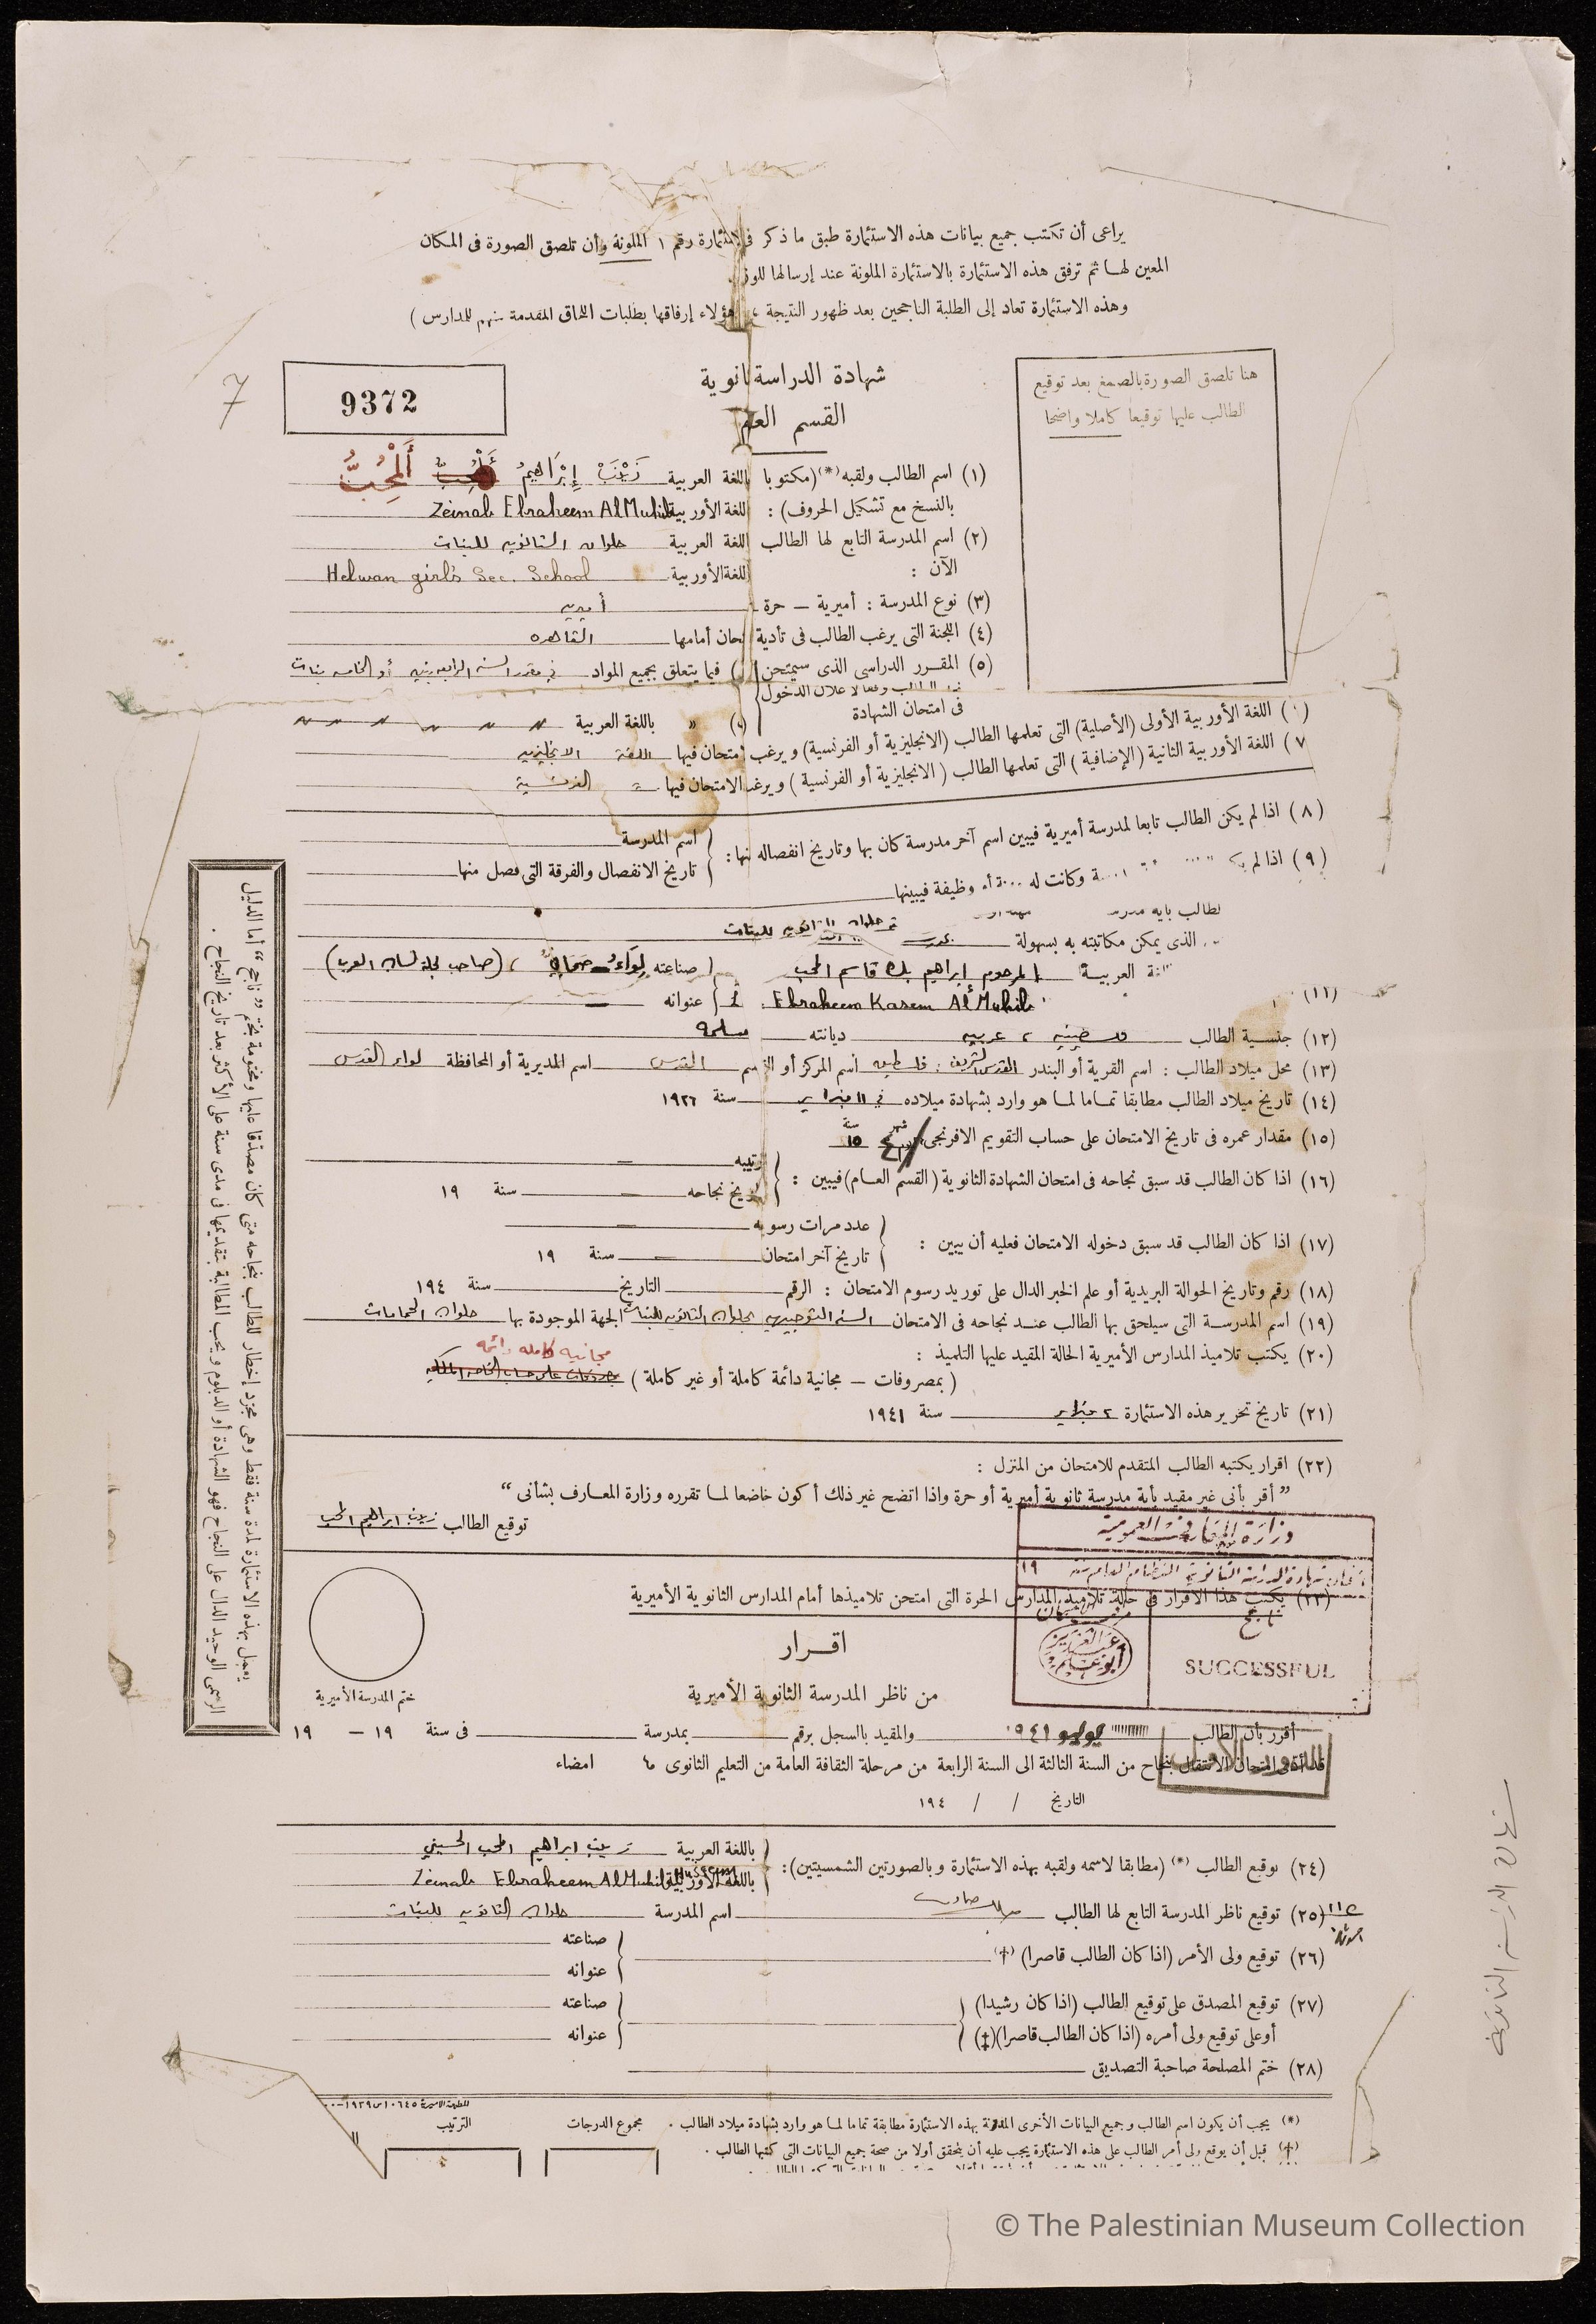 يراعى أن تكتب جميع بيانات هذه الاستمارة طبق ما ذكر رقم ١ الملونة وأن تلصق الصورة فى المكان
المعين لهـا ثم ترفق هذه الاستمارة بالاستمارة الملونة عند إرسالها
وهذه الاستمارة تعاد إلى الطلبة الناجحين بعد ظهور النتيجة هؤلاء إرفاقها بطلبات اللحاق المقدمة منهم للمدارس )
هنا تلصق الصورة بالصمغ بعد توقيع
الطالب عليها توقيعا كاملا واضحا
شهادة الدراسة
القسم
9372
7
(١) اسم الطالب ولقبه (*) (مكتوبا باللغة العربية زَيْنَبْ إِبْرَاهِيمُ أَلْمُحِبُّ
بالنسخ مع تشكيل الحروف) : اللغة الأوربية Zeinab Ebraheem Al Muhib
(٢) اسم المدرسة التابع لها الطالب اللغة العربية حلوان الثانوية للبنات
الآن : اللغة الأوربية Helwan girl's Sec. School
(٣) نوع المدرسة : أميرية — حرة أميرية
(٤) اللجنة التى يرغب الطالب فى تأدية أمامها القاهره
(٥) المقـرر الدراسى الذى سيمتحن فيما يتعلق بجميع المواد فى مقرر السنة الرابعة بنين أو الخامسة بنات
الدخول
فى امتحان الشهادة » باللغة العربية 〃 〃 〃 〃 〃 〃
اللغة الأوربية الأولى (الأصلية) التى تعلمها الطالب (الانجليزية أو الفرنسية) ويرغب امتحان فيها اللغة الانجليزية
٧) اللغة الأوربية الثانية (الإضافية) التى تعلمها الطالب (الانجليزية أو الفرنسية) ويرغب الامتحان فيها الفرنسية
(٨) اذا لم يكن الطالب تابعا لمدرسة أميرية فيبين اسم آخر مدرسة كان بها وتاريخ انفصاله منها : اسم المدرسة
تاريخ الانفصال والفرقة التى فصل منها
(٩) اذا لم وكانت له وظيفة فيبينها
الذى يمكن مكاتبته به بسهولة حلوان الثانوية للبنات
العربيـة المرحوم ابراهيم بك قاسم المحب صناعته لواء صحافى ، (صاحب مجلة لسان العرب)
(١١) Ebraheem Kasem Al Muhib عنوانه —
(١٢) جنسية الطالب فلسطينية ، عربية ديانته مسلمة
(١٣) محل ميلاد الطالب : اسم القرية أو البندر القدس الشريف . فلسطين اسم المركز أو القسم القدس اسم المديرية أو المحافظة لواء القدس
(١٤) تاريخ ميلاد الطالب مطابقا تمـاما لمـا هو وارد بشهادة ميلاده فى ١١ فبراير سنة ١٩٢٦
(١٥) مقدار عمره فى تاريخ الامتحان على حساب التقويم الافرنجى شهر سنة ١٥
(١٦) اذا كان الطالب قد سبق نجاحه فى امتحان الشهادة الثانوية (القسم العـام) فيبين : ترتيبه —
تاريخ نجاحه — سنة ١٩
(١٧) اذا كان الطالب قد سبق دخوله الامتحان فعليه أن يبين : عدد مرات رسوبه —
تاريخ آخر امتحان — سنة ١٩
(١٨) رقم وتاريخ الحوالة البريدية أو علم الخبر الدال على توريد رسوم الامتحان : الرقم التاريخ سنة ١٩٤
(١٩) اسم المدرسـة التى سيلحق بها الطالب عنـد نجاحه فى الامتحان السنة التوجيهية بحلوان الثانوية للبنات الجهة الموجودة بها حلوان الحمامات
(٢٠) يكتب تلاميذ المدارس الأميرية الحالة المقيد عليها التلميذ :
مجانية كاملة دائمة
( بمصروفات — مجانية دائمة كاملة أو غير كاملة )
(٢١) تاريخ تحرير هذه الاستمارة ٢ فبراير سنة ١٩٤١
(٢٢) اقرار يكتبه الطالب المتقدم للامتحان من المنزل :
” أقر بأنى غير مقيد بأية مدرسة ثانوية أميرية أو حرة واذا اتضح غير ذلك أكون خاضعا لمـا تقرره وزارة المعـارف بشأنى “
توقيع الطالب زينب ابراهيم المحب
وزارة المعارف العمومية
١٩
(٢٣) يكتب هذا الاقرار فى حالة تلاميذ المدارس الحرة التى امتحن تلاميذها أمام المدارس الثانوية الأميرية
ناجح
SUCCESSFUL
اقـرار
من ناظر المدرسة الثانوية الأميرية
ختم المدرسة الأميرية
أقرر بأن الطالب يوليو ١٩٤١ والمقيد بالسجل برقم بمدرسة فى سنة ١٩ — ١٩
الدور الأول
قد أدى امتحان الانتقال بنجاح من السنة الثالثة الى السنة الرابعة من مرحلة الثقافة العامة من التعليم الثانوى امضاء
التاريخ / / ١٩٤
(٢٤) توقيع الطالب (*) (مطابقا لاسمه ولقبه بهذه الاستمارة وبالصورتين الشمسيتين): باللغة العربية زينب ابراهيم المحب الحسينى
باللغة الأوربية Zeinab Ebraheem Al Muhib
(٢٥) توقيع ناظر المدرسة التابع لها الطالب اسم المدرسة حلوان الثانوية للبنات
(٢٦) توقيع ولى الأمر (اذا كان الطالب قاصرا) (†) صناعته
عنوانه
(٢٧) توقيع المصدق على توقيع الطالب (اذا كان رشيدا) صناعته
أو على توقيع ولى أمره (اذا كان الطالب قاصرا) (‡) عنوانه
(٢٨) ختم المصلحة صاحبة التصديق
(*) يجب أن يكون اسم الطالب وجميع البيانات الأخرى المدونة بهذه الاستمارة مطابقة تماما لمـا هو وارد بشهادة ميلاد الطالب .
(†) قبل أن يوقع ولى أمر الطالب على هذه الاستمارة يجب عليه أن يتحقق أولا من صحة جميع البيانات التى كتبها الطالب .
مجموع الدرجات
الترتيب
يعمل بهذه الاستمارة لمدة سنة فقط وهى مجرّد إخطار للطالب بنجاحه متى كان مصدّقا عليها ومختومة بختم ” ناجح “ أما الدليل
الرسمى الوحيد الدال على النجاح فهو الشهادة أو الدبلوم ويجب المطالبة بتقديمها فى مدى سنة على الأكثر بعد تاريخ النجاح .
© The Palestinian Museum Collection